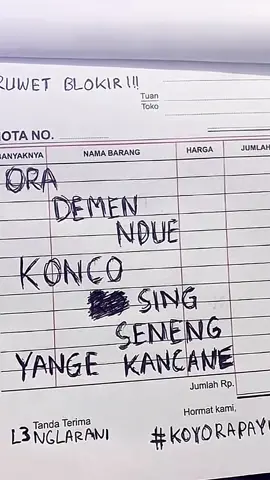 RUWET BLOKIR!!!
Tuan
Toko
NOTA NO.
BANYAKNYA NAMA BARANG HARGA JUMLAH
ORA
DEMEN
NDUE
KONCO
SING
SENENG
YANGE KANCANE
Jumlah Rp.
Tanda Terima Hormat kami,
L3NGLARANI #KOYORAPAY